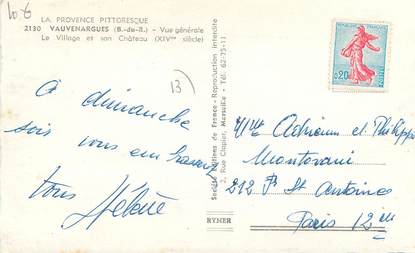 LA PROVENCE PITTORESQUE
2130 VAUVENARGUES (B.-du-R.) - Vue générale
Le Village et son Château (XIVme siècle)
13
à dimanche
soir vous embrasse
tous Hélène
Société Editions de France - Reproduction interdite
2, Rue Clapier, Marseille - Tél. 62-75-11
RYNER
0,20
Mlle Adrienne et Philippe
Mantovani
212 Fg St Antoine
Paris 12